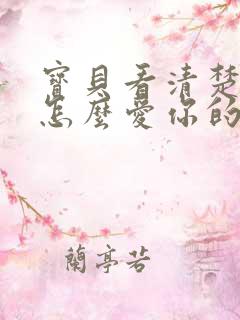 寶貝看清楚
怎麼愛你的
蘭亭若